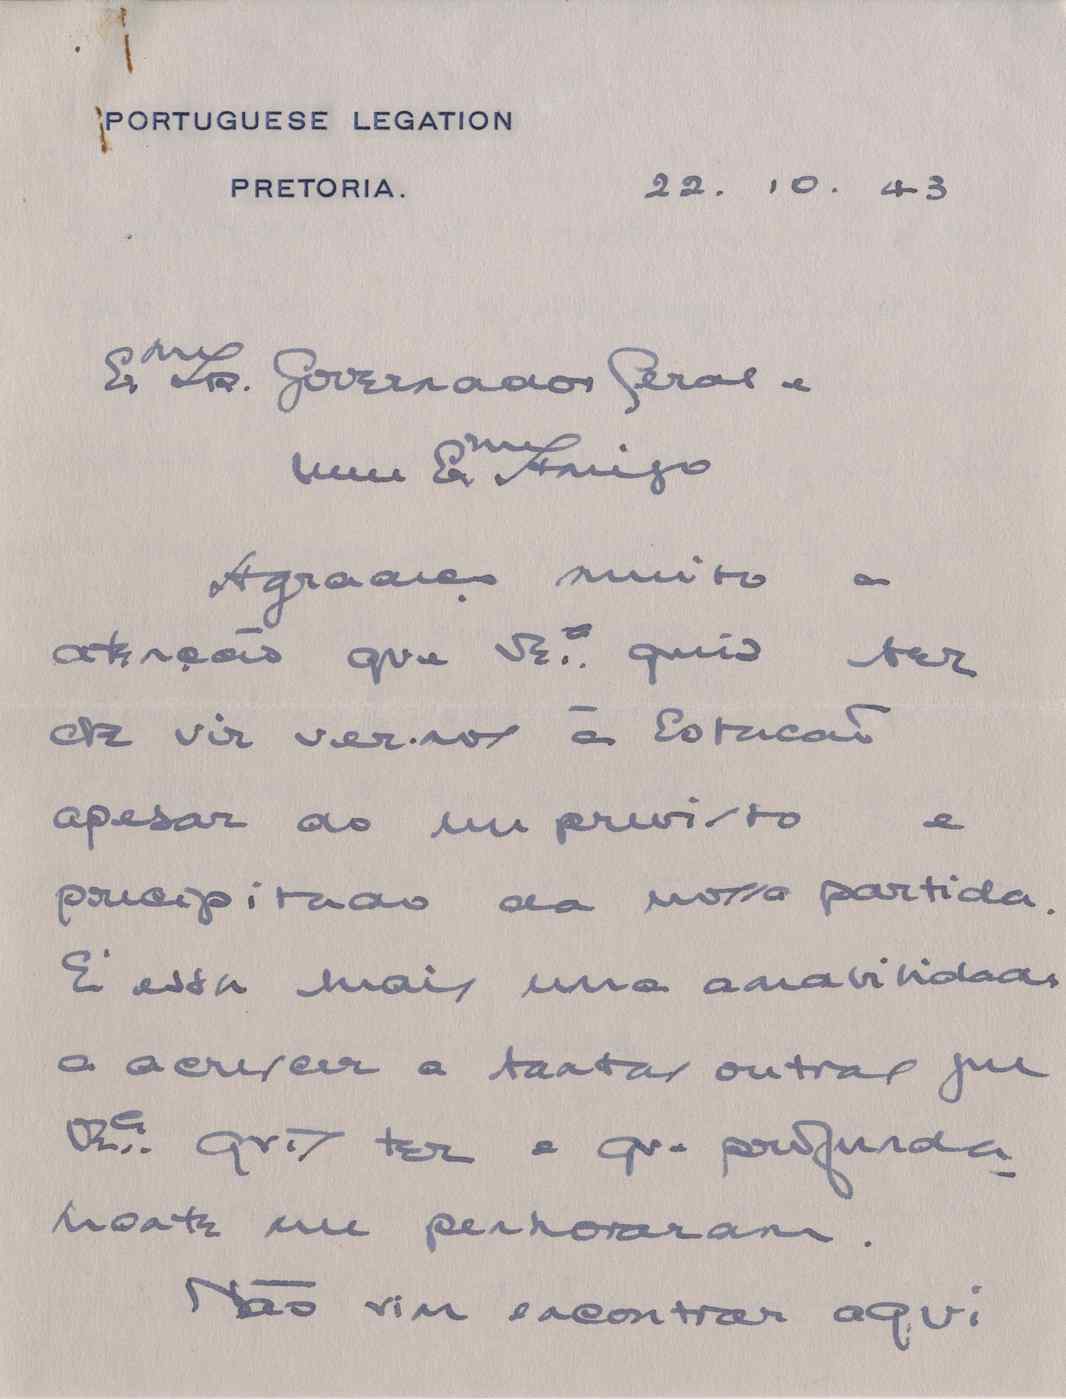 PORTUGUESE LEGATION
PRETORIA.
22. 10. 43
Exmo Sr. Governador Geral e
meu Exmo Amigo
Agradeço muito a
atenção que V.Exa. quis ter
de vir ver-nos à Estação
apesar do imprevisto e
precipitado da nossa partida.
É essa mais uma amabilidade
a acrescer a tantas outras que
V.Exa. quis ter e que profunda-
mente me penhoraram.
Não vim encontrar aqui